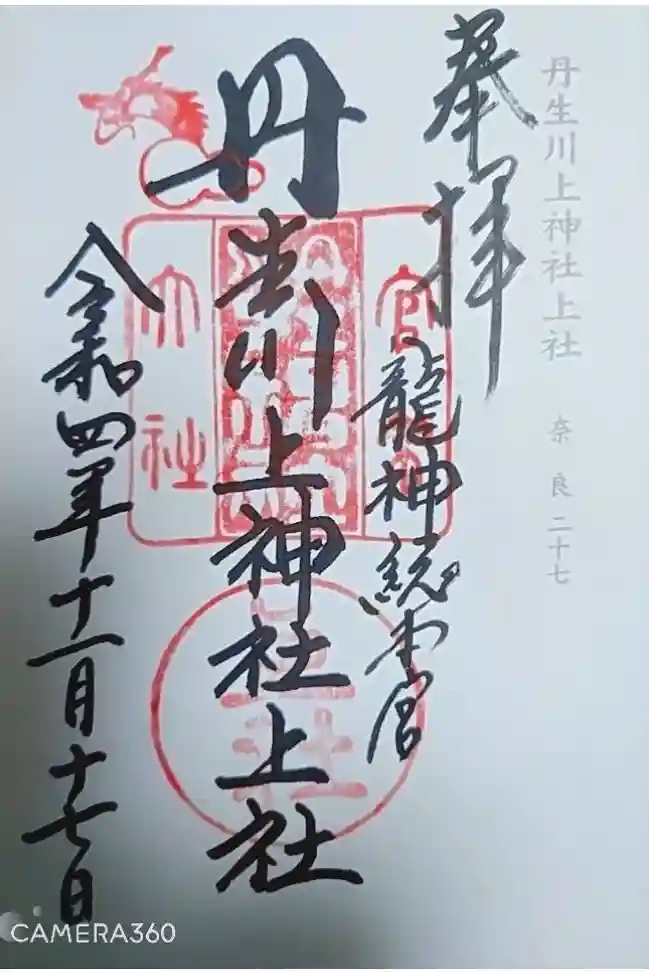 丹生川上神社上社 奈良二十七
奉拝
龍神総本宮
官幣
大社
丹生川上神社上社
上社
令和四年十一月十七日
CAMERA360